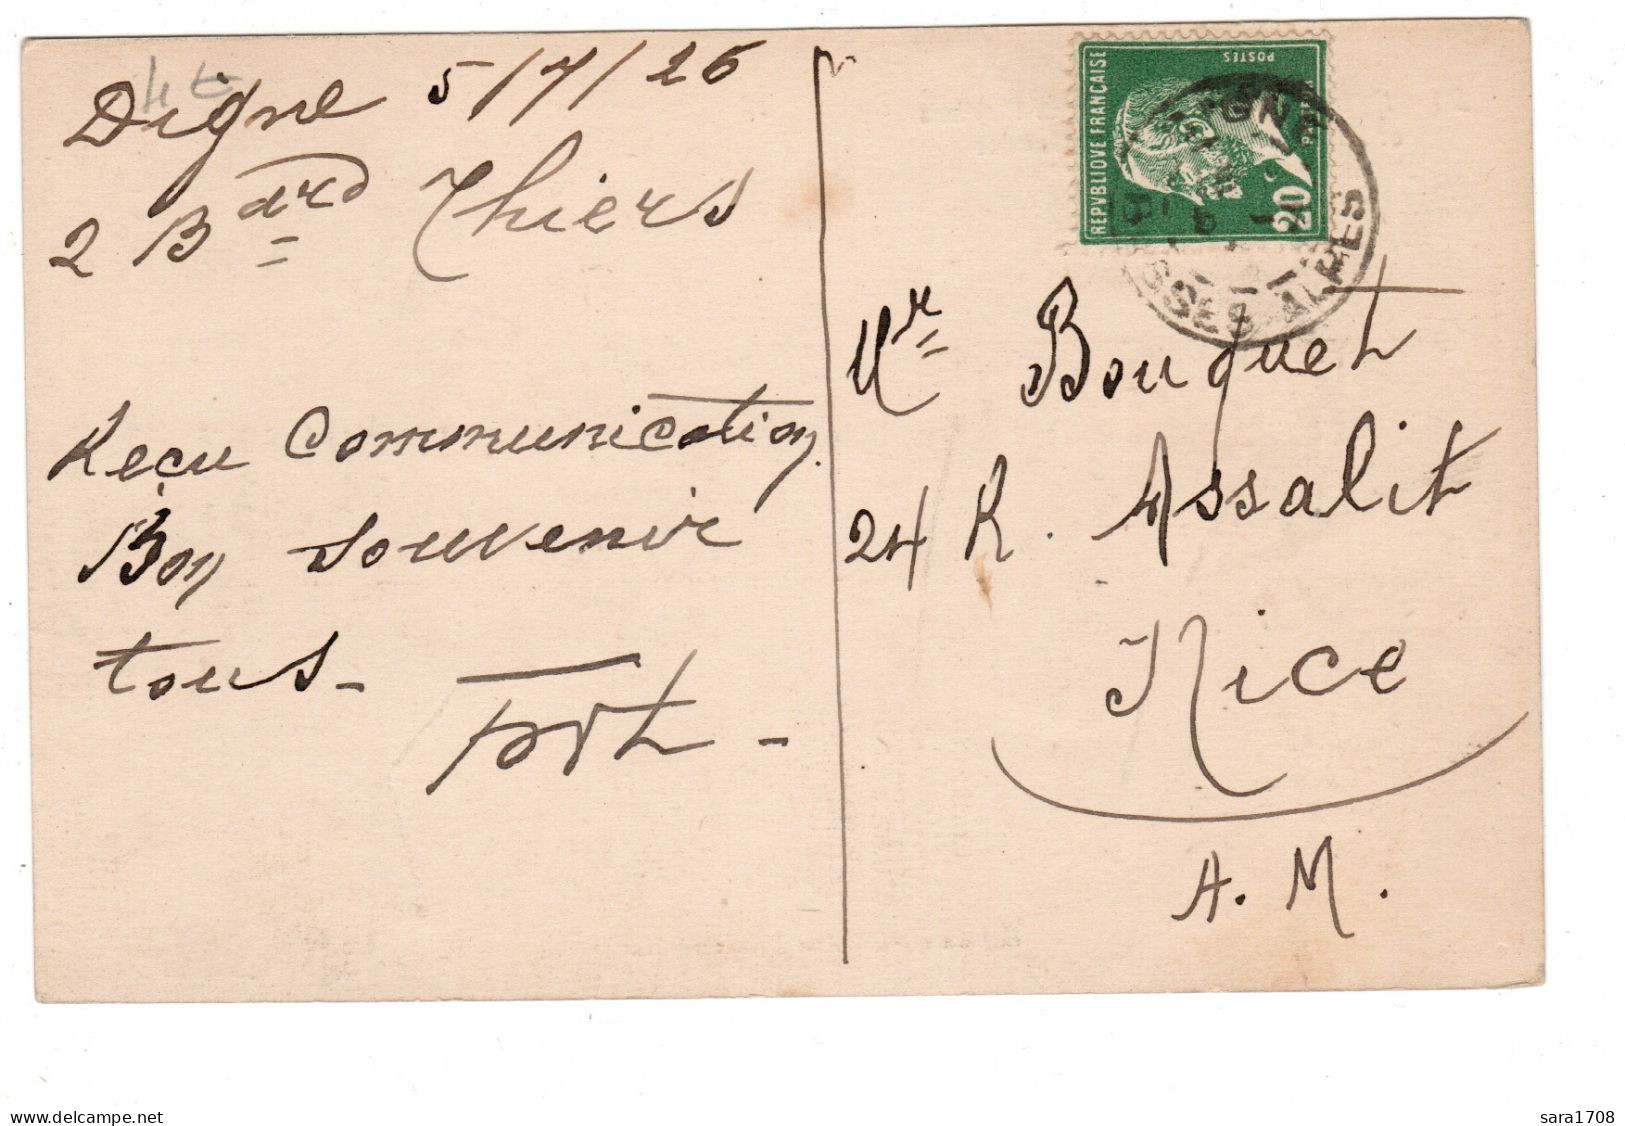 Digne 5/7/26
2 Bard Thiers
Reçu Communication
Bon souvenir
tous -
REPVBLIQVE FRANÇAISE
POSTES
20
BASSES-ALPES
Mr Bouquet
24 R. Assalit
Nice
A. M.
www.delcampe.net
sara1708